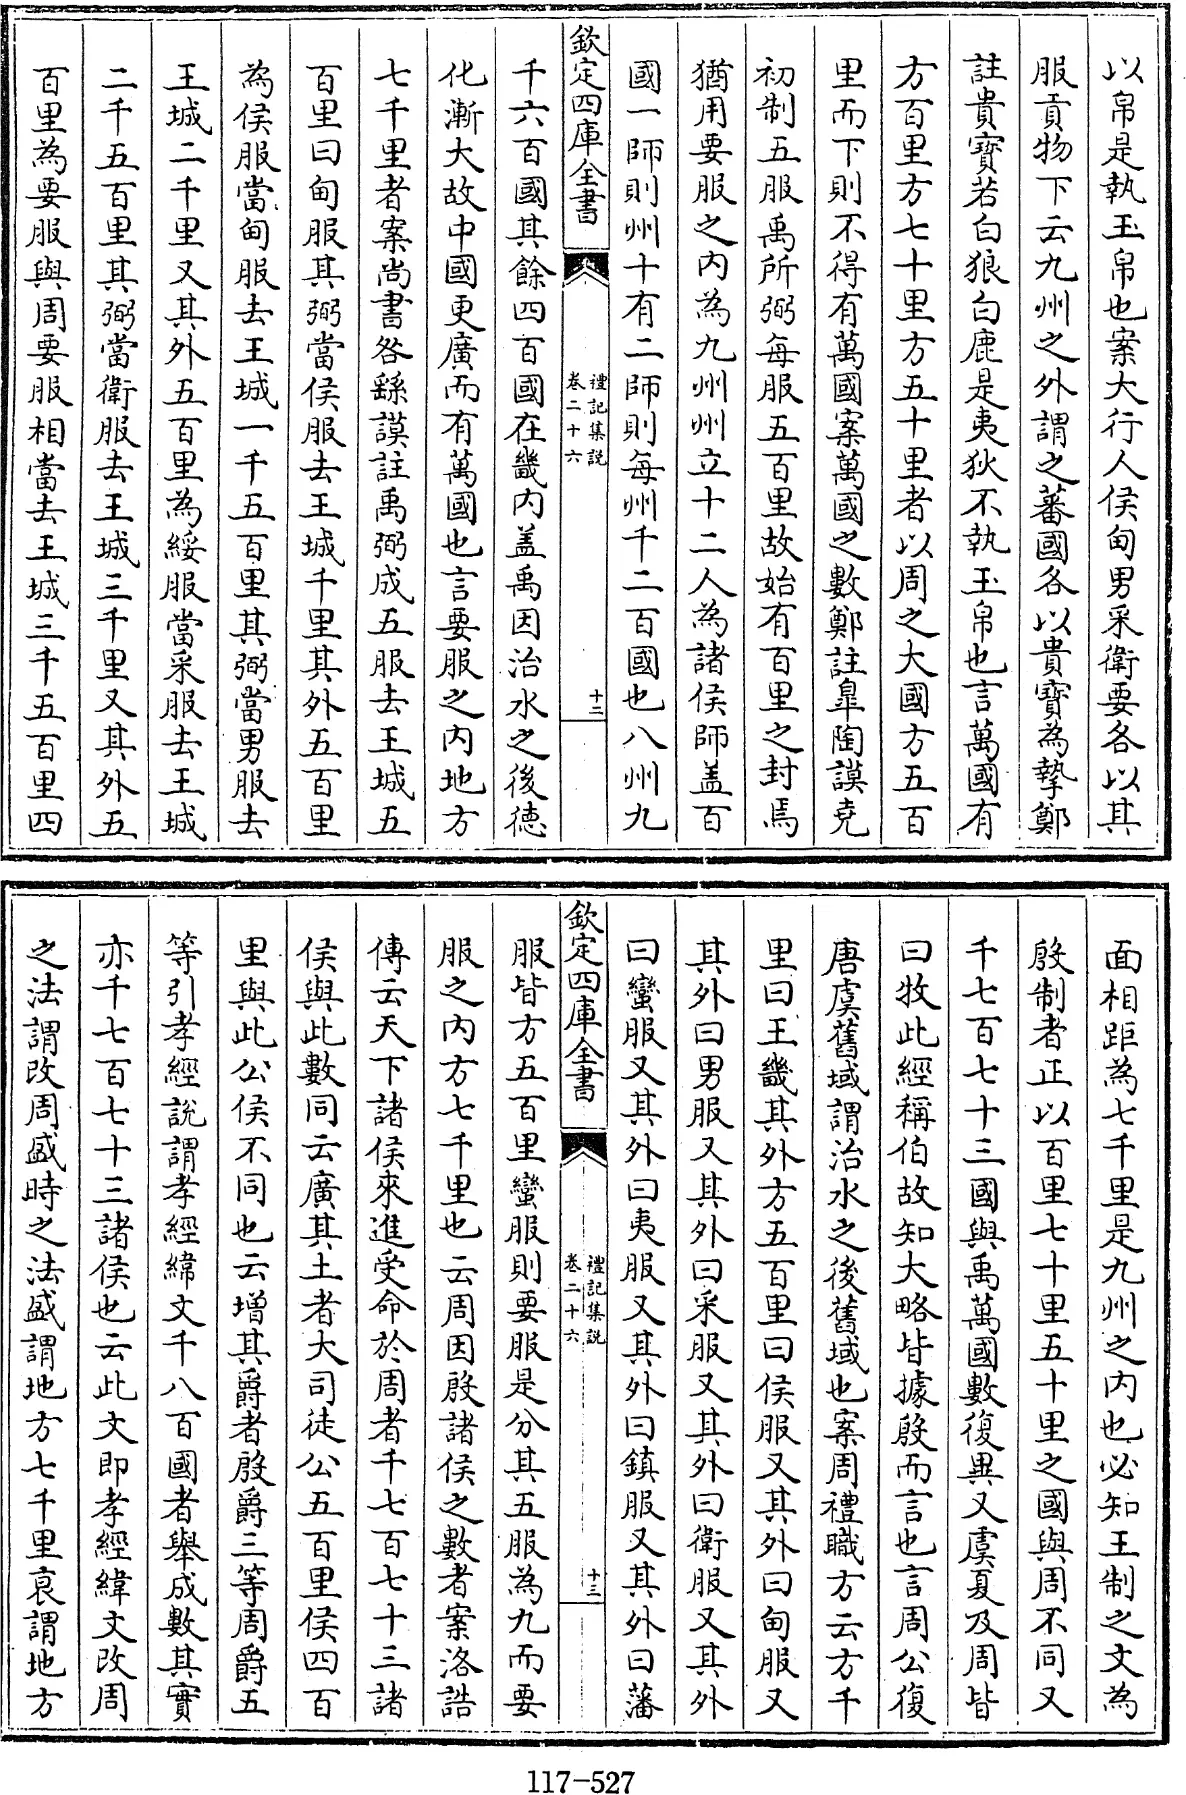 以帛是執玉帛也案大行人侯甸男采衛要各以其
服貢物下云九州之外謂之蕃國各以貴寶為摯鄭
註貴寳若白狼白鹿是夷狄不執玉帛也言萬國有
方百里方七十里方五十里者以周之大國方五百
里而下則不得有萬國案萬國之數鄭註臯陶謨堯
初制五服禹所弼每服五百里故始有百里之封焉
猶用要服之内為九州州立十二人為諸侯師盖百
國一師則州十有二師則每州千二百國也八州九
欽定四庫全書
禮記集説
卷二十六
十二
千六百國其餘四百國在畿内盖禹因治水之後德
化漸大故中國更廣而有萬國也言要服之内地方
七千里者案尚書咎繇謨註禹弼成五服去王城五
百里曰甸服其弼當侯服去王城千里其外五百里
為侯服當甸服去王城一千五百里其弼當男服去
王城二千里又其外五百里為綏服當采服去王城
二千五百里其弼當衛服去王城三千里又其外五
百里為要服與周要服相當去王城三千五百里四
面相距為七千里是九州之内也必知王制之文為
殷制者正以百里七十里五十里之國與周不同又
千七百七十三國與禹萬國數復異又虞夏及周皆
曰牧此經稱伯故知大略皆據殷而言也言周公復
唐虞舊域謂治水之後舊域也案周禮職方云方千
里曰王畿其外方五百里曰侯服又其外曰甸服又
其外曰男服又其外曰采服又其外曰衛服又其外
曰蠻服又其外曰夷服又其外曰鎮服又其外曰藩
欽定四庫全書
禮記集説
卷二十六
十三
服皆方五百里蠻服則要服是分其五服為九而要
服之内方七千里也云周因殷諸侯之數者案洛誥
傳云天下諸侯來進受命於周者千七百七十三諸
侯與此數同云廣其土者大司徒公五百里侯四百
里與此公侯不同也云增其爵者殷爵三等周爵五
等引孝經説謂孝經緯文千八百國者舉成數其實
亦千七百七十三諸侯也云此文即孝經緯文改周
之法謂改周盛時之法盛謂地方七千里衰謂地方
117-527